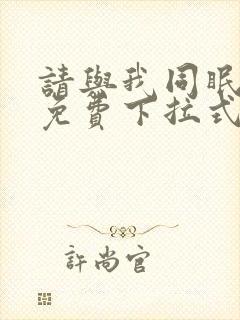 請與我同眠
免費下拉式
許尚官